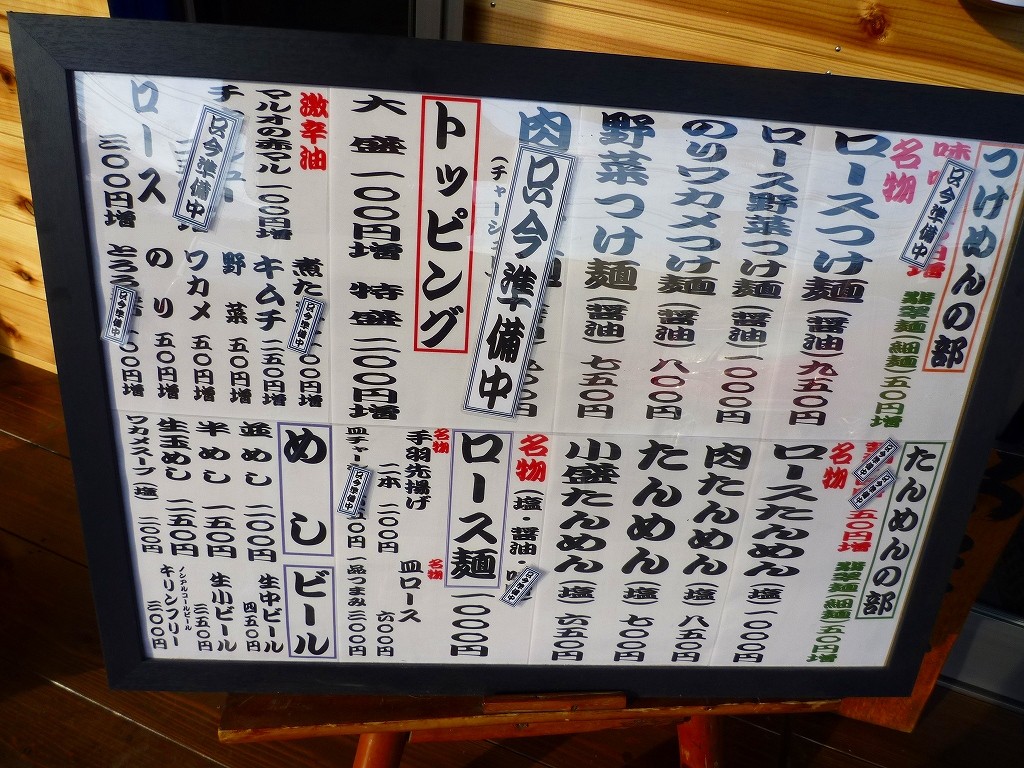 つけめんの部
只今準備中
翡翠麺(細麺)五〇円増
名物
ロースつけ麺(醤油)九五〇円
ロース野菜つけ麺(醤油)一〇〇〇円
のりワカメつけ麺(醤油)八〇〇円
野菜つけ麺(醤油)七五〇円
肉
只今準備中
トッピング
大盛一〇〇円増
特盛二〇〇円増
激辛油
マルオの赤マル一〇〇円増
煮た
只今準備中
〇〇円増
キムチ二五〇円増
只今準備中
野菜五〇円増
ワカメ五〇円増
ロース三〇〇円増
のり五〇円増
とろろ
只今準備中
一〇〇円増
たんめんの部
只今準備中
只今準備中
五〇円増
翡翠麺(細麺)五〇円増
名物
ロースたんめん(塩)一〇〇〇円
肉たんめん(塩)八五〇円
たんめん(塩)七〇〇円
小盛たんめん(塩)六五〇円
名物(塩・醤油・
只今準備中
ロース麺一〇〇〇円
名物
手羽先揚げ
二本二〇〇円
名物
皿ロース
六〇〇円
皿チャー
只今準備中
〇〇円
一品つまみ三〇〇円
めし
並めし二〇〇円
半めし一五〇円
生玉めし二五〇円
ワカメスープ(塩)二〇〇円
ビール
生中ビール四五〇円
生小ビール三五〇円
ノンアルコールビール
キリンフリー三〇〇円